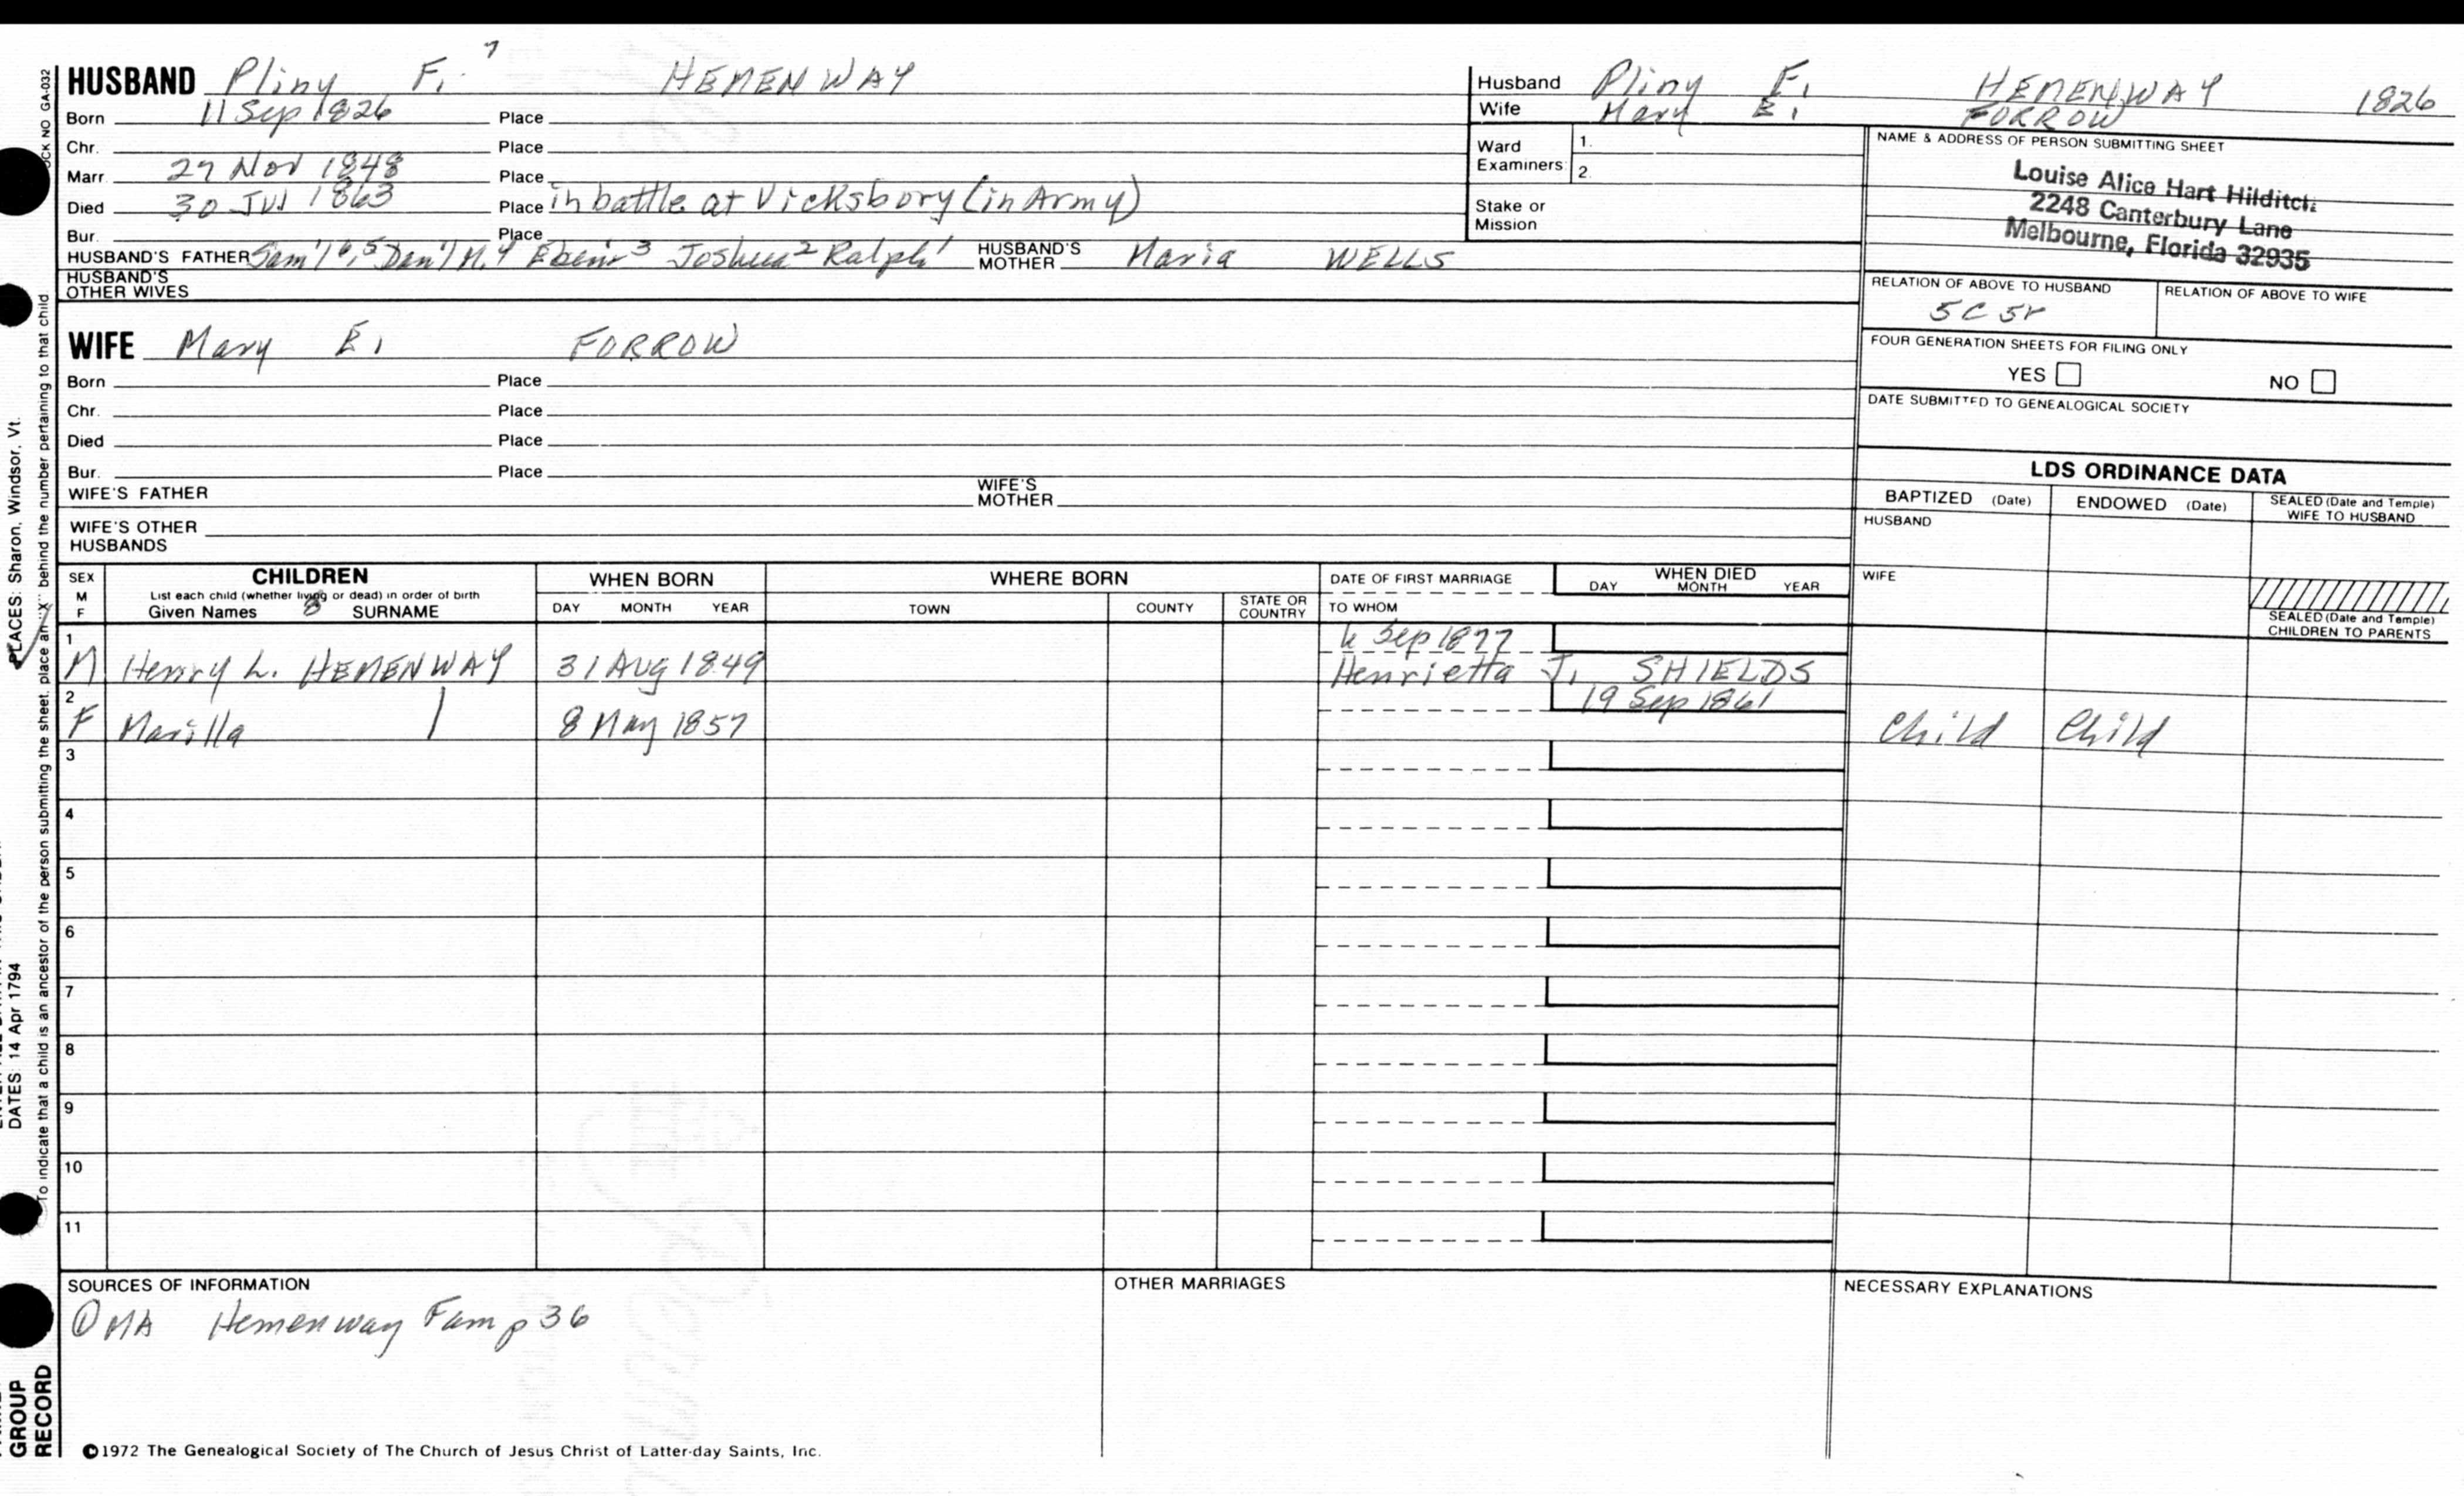 HUSBAND Pliny F. 7 HEMENWAY
Born 11 Sep 1826 Place
Chr. Place
Marr. 27 Nov 1848 Place
Died 30 Jul 1863 Place in battle at Vicksbory (in Army)
Bur. Place
HUSBAND'S FATHER Sam'l 6, 5 Dan'l M. 4 Eben'r 3 Joshua 2 Ralph 1 HUSBAND'S MOTHER Maria WELLS
HUSBAND'S OTHER WIVES
WIFE Mary E. FORROW
Born Place
Chr. Place
Died Place
Bur. Place
WIFE'S FATHER WIFE'S MOTHER
WIFE'S OTHER HUSBANDS
Husband Pliny F. HEMENWAY 1826
Wife Mary E. FORROW
Ward Examiners: 1.
2.
Stake or Mission
NAME & ADDRESS OF PERSON SUBMITTING SHEET
Louise Alice Hart Hilditch
2248 Canterbury Lane
Melbourne, Florida 32935
RELATION OF ABOVE TO HUSBAND RELATION OF ABOVE TO WIFE
5C 5r
FOUR GENERATION SHEETS FOR FILING ONLY
YES NO
DATE SUBMITTED TO GENEALOGICAL SOCIETY
LDS ORDINANCE DATA
BAPTIZED (Date) ENDOWED (Date) SEALED (Date and Temple) WIFE TO HUSBAND
HUSBAND
WIFE
SEALED (Date and Temple) CHILDREN TO PARENTS
SEX M F
CHILDREN
List each child (whether living or dead) in order of birth
Given Names SURNAME
WHEN BORN
DAY MONTH YEAR
WHERE BORN
TOWN COUNTY STATE OR COUNTRY
DATE OF FIRST MARRIAGE
TO WHOM
WHEN DIED
DAY MONTH YEAR
1 M Henry L. HEMENWAY 31 Aug 1849 Sep 1877
Henrietta J. SHIELDS
2 F Marilla 8 May 1857 19 Sep 1861 Child Child
3
4
5
6
7
8
9
10
11
SOURCES OF INFORMATION
① MA Hemenway Fam p 36
OTHER MARRIAGES
NECESSARY EXPLANATIONS
©1972 The Genealogical Society of The Church of Jesus Christ of Latter-day Saints, Inc.
GROUP
RECORD
DATES: 14 Apr 1794
PLACES: Sharon, Windsor, Vt.
To indicate that a child is an ancestor of the person submitting the sheet, place an "X" behind the number pertaining to that child
NO GA-032